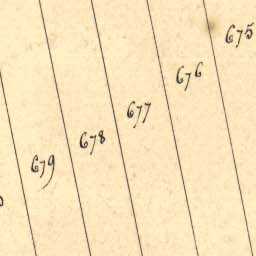 675
676
677
678
679